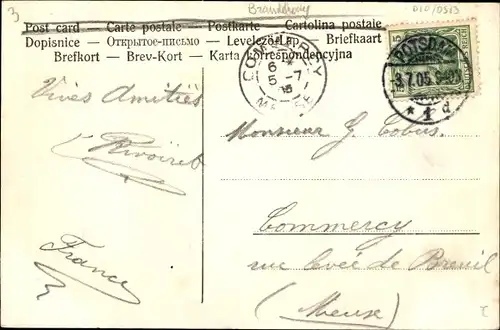 3
Brandenburg
D10/0513
Post card — Carte postale — Postkarte — Cartolina postale
Dopisnice — Открытое-письмо — Levelező-Lap — Briefkaart
Brefkort — Brev-Kort — Karta korrespondencyjna
COMMERCY
6
5 -7
05
MEUSE
5
POTSDAM
3.7.05
* 1 d
Vives Amitiés
Monsieur G. Cobus.
France
Commercy
rue Levée de Breuil
(Meuse)